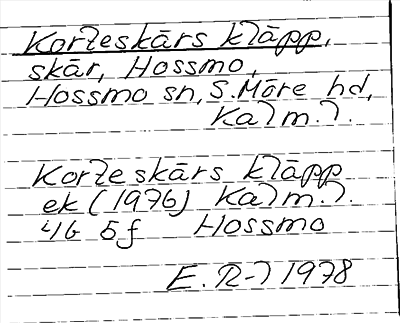 Korteskärs kläpp,
skär, Hossmo,
Hossmo sn, S. Möre hd,
Kalm. l.
Korteskärs kläpp
ek (1976) Kalm. l.
4G 5f Hossmo
E. R-l 1978